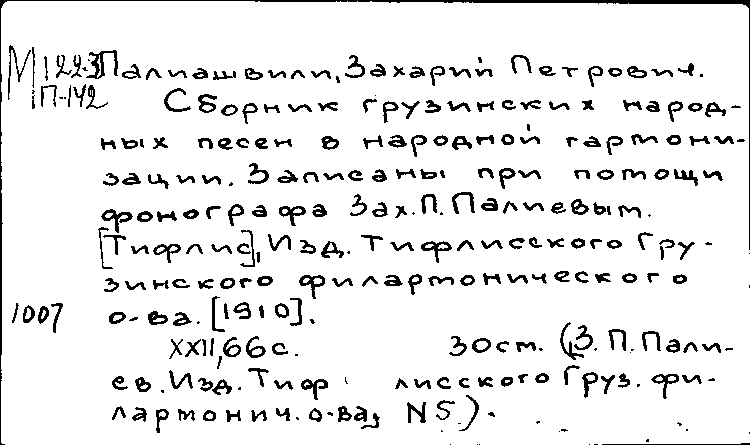 М 122-3 Палиашвили, Захарий Петрович.
П-142
Сборник грузинских народ-
ных песен в народной гармони-
зации. Записаны при помощи
фонографа Зах. П. Палиевым.
[Тифлис], Изд. Тифлисского Гру-
зинского филармонического
1007 о-ва. [1910].
XXII, 66 с. 30 см. (З. П. Пали-
ев. Изд. Тифлисского Груз. фи-
лармонич. о-ва, N5).